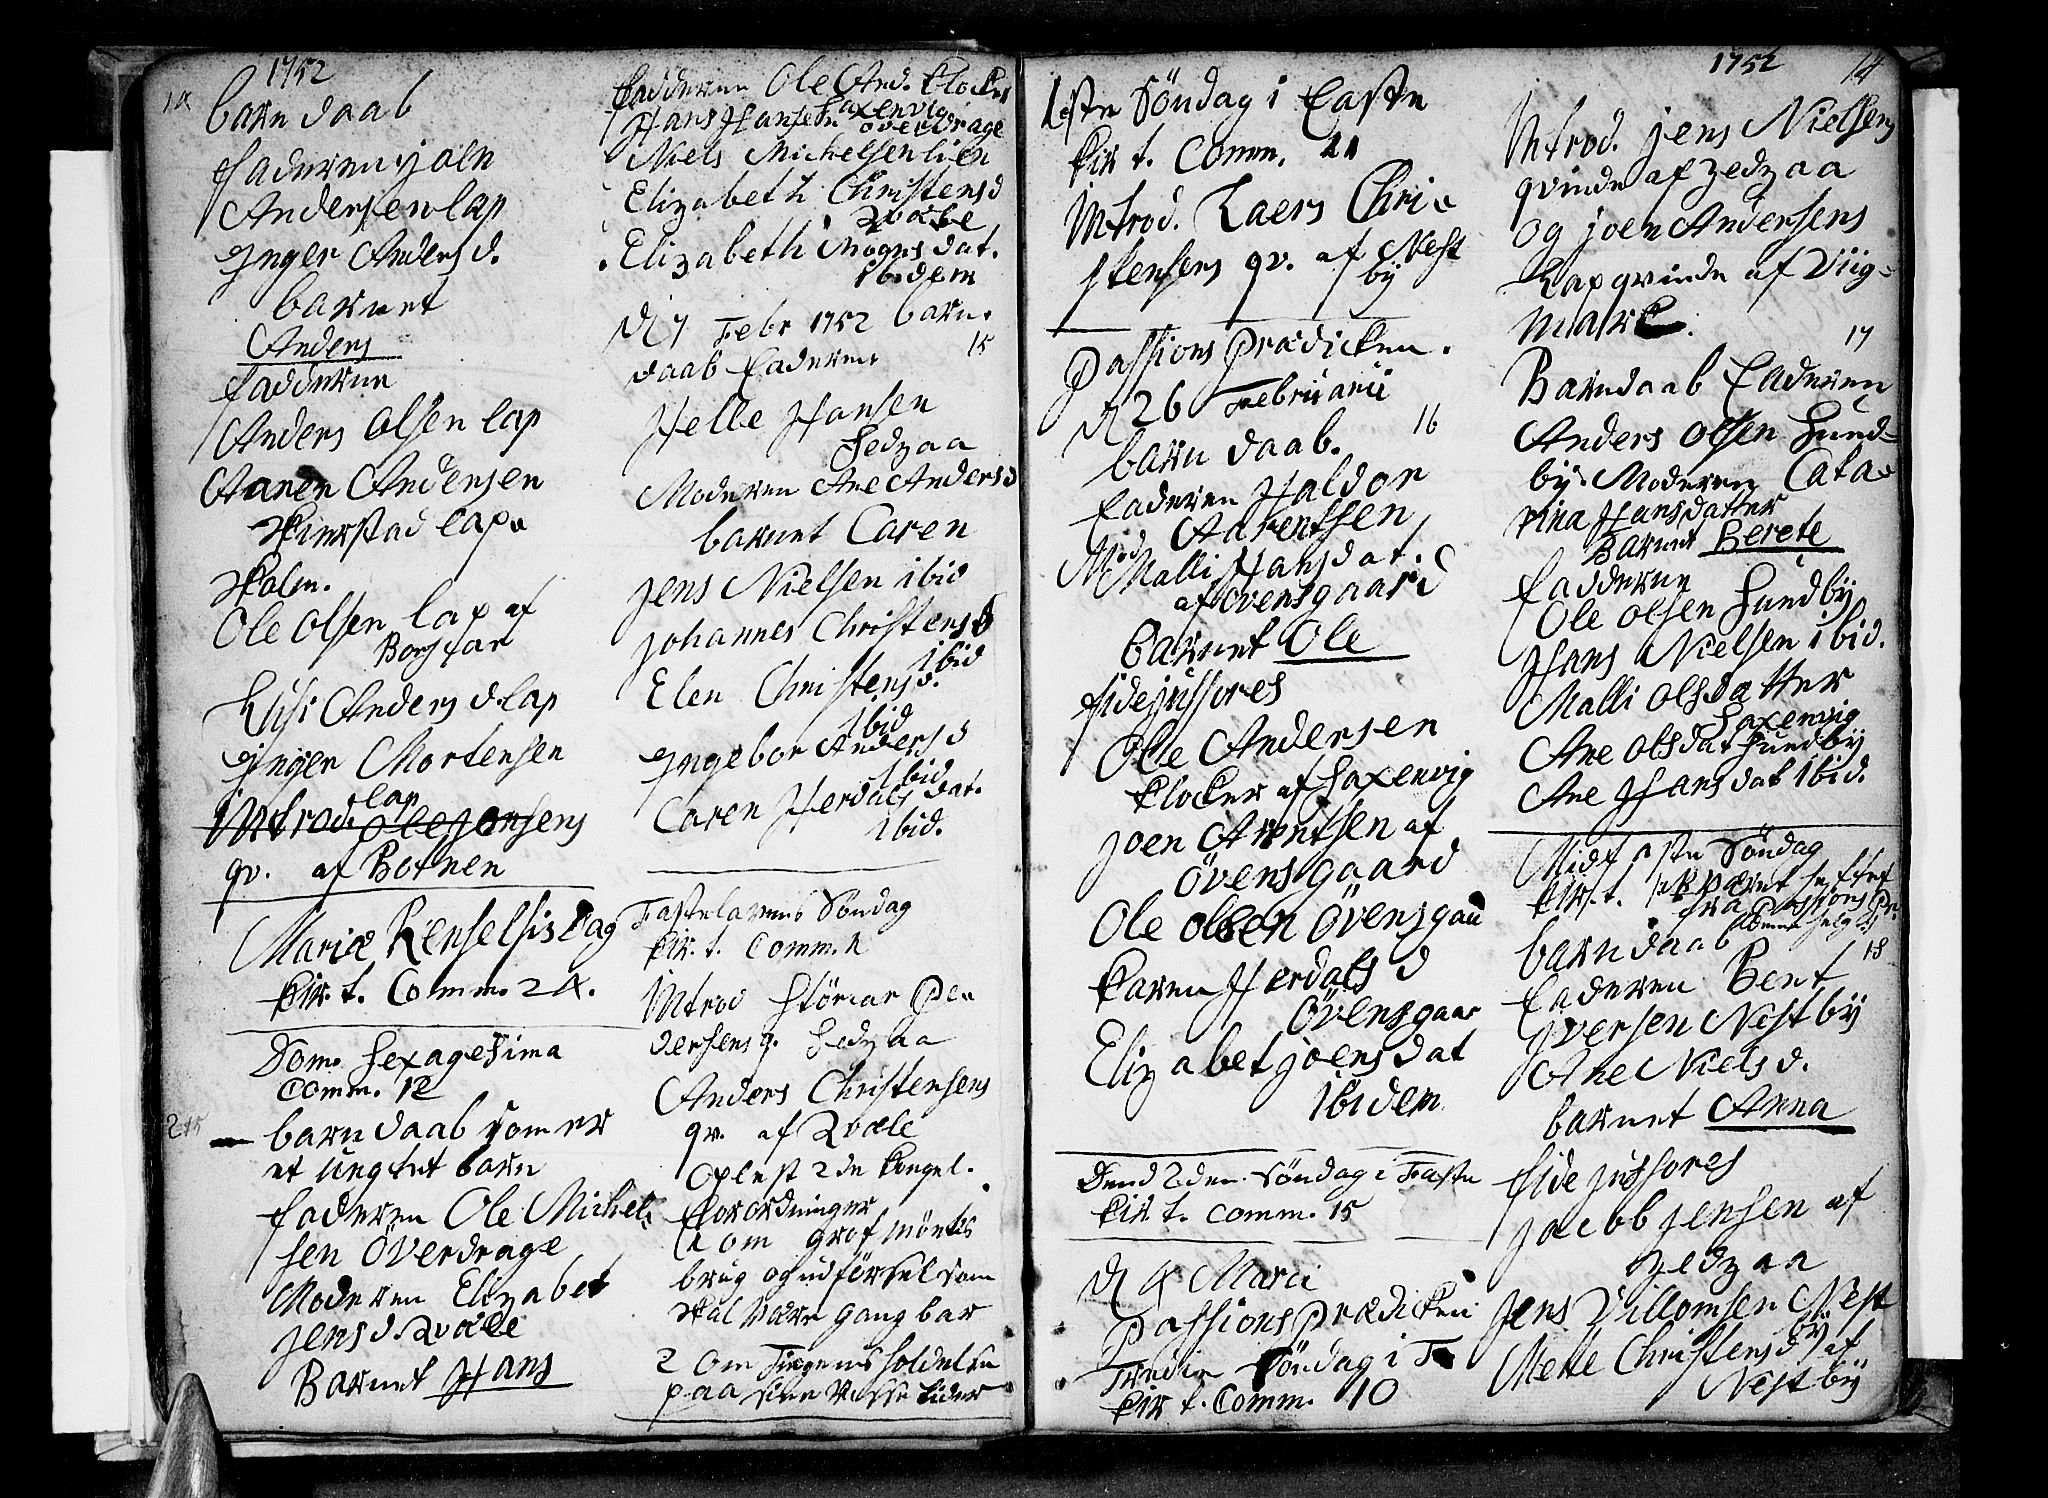 1752
14
barn daab
Faderen joen
Andersen lap
Inger Anders d.
barnet
Anders
Fadderne
Anders Olsen lap
Aaren Andersen
Skierstad lap
Skalm.
Ole Olsen lap af
Lisi Anders d lap
Inger Mortensen
lap
Introd. Ole Jonsens
qv. af Botnen
Mariæ Renselsis Dag
kir. t. Comm. 24.
Dom. Sexagesima
Comm. 12
barn daab som er
et uægtet barn
Faderen Ole Michel-
sen Overdrage
Moderen Elizabet
Jens d Qvæle
Barnet Hans
Fadderne Ole And. Klocker
Saxenvig
Hans Hansen overdrage
Niels Michelsen lien
Elizabeth Christens d
Qvæle
Elizabeth Mogns dat.
ibidem
D 7 Febr 1752 barn-
15
daab Faderen
Helle Hansen
Sedzaa
Moderen Ane Anders d
barnet Caren
Jens Nielsen ibid
Johannes Christens
ibid
Elen Christens d.
ibid
Ingebor Anders d
ibid
Caren Herdals dat.
ibid.
Fastelavens Søndag
kir. t. Comm.
Introd Störiar Pe-
dersens q. Sedzaa
Anders Christensens
qv. af Qvæle
Oplest 2de kongel.
Forordninger
1 om grof mönts
brug og udförsel som
skal være gangbar
2 Om Tingenis holdelse
paa sine visse tider
1752
14
1ste Söndag i Faste
kir t. Comm. 11
Introd. Laers Chri-
stensens qv. af Nest
by
Passions Prædicken.
D 26 Februarii
16
barn daab.
Faderen Haldor
Aarentsen
Mod Malli Hans dat.
af Ovensgaard
Barnet Ole
Fidejussores
Ole Andersen
Klocker af Saxenvig
Joen Arentsen af
Övensgaard
Ole Olsen Övensgaa
Karen Herdals d
Övensgaar
Elizabet joens dat
ibidem
Dend 2den Söndag i Faste
kir t. Comm. 15
D 4 Marci
Passions Prædicken
Tredie Söndag i Fa
kir t. Comm. 10
Introd. jens Nielsens
qvinde af Zedzaa
og joen Andersens
Lap qvinde af Viig-
mark.
17
Barndaab Faderen
Anders Olsen Sund-
by. Moderen Cata-
rina Hansdatter
Barnet Berete
Fadderne
Ole Olsen Sundby
Hans Nielsen ibid.
Malli Olsdatter
Saxenvig
Ane Olsdat Sundby
Ane Hans dat ibid.
Midfaste Söndag
kir. t.
fra Passions Pr.
barn daab
18
Faderen Bent
Iversen Nestby
Ane Niels d.
barnet Anna
Fidejussores
Jacob Jensen af
Zedzaa
Jens Villomsen Nest
by
Mette Christens d af
Nestby